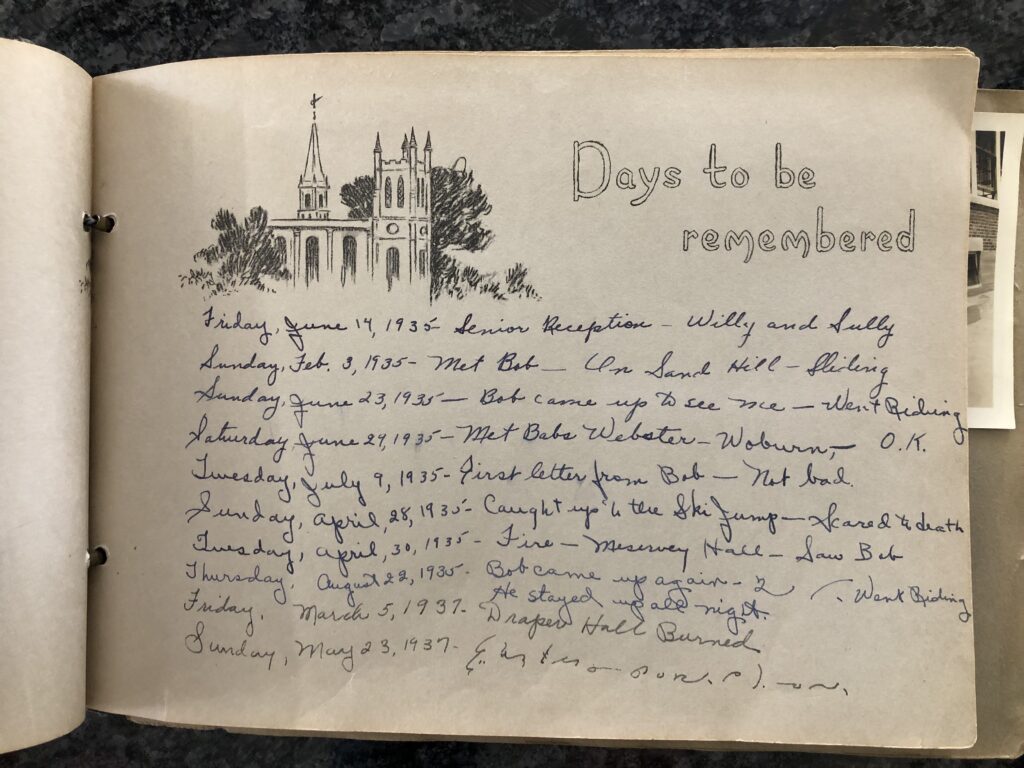 Days to be
remembered
Friday, June 14, 1935- Senior Reception - Willy and Sully
Sunday, Feb. 3, 1935- Met Bob- On Sand Hill- Sliding
Sunday, June 23, 1935- Bob came up to see me - Went Riding
Saturday, June 29, 1935- Met Babs Webster- Woburn,- O.K.
Tuesday, July 9, 1935- First letter from Bob - Not bad.
Sunday, April, 28, 1935- Caught up in the Ski Jump- Scared to death
Tuesday, April, 30, 1935- Fire- Meservey Hall- Saw Bob
Thursday, August 22, 1935- Bob came up again - Went Riding
He stayed up all night.
Friday, March 5, 1937- Draper Hall Burned
Sunday, May 23, 1937-